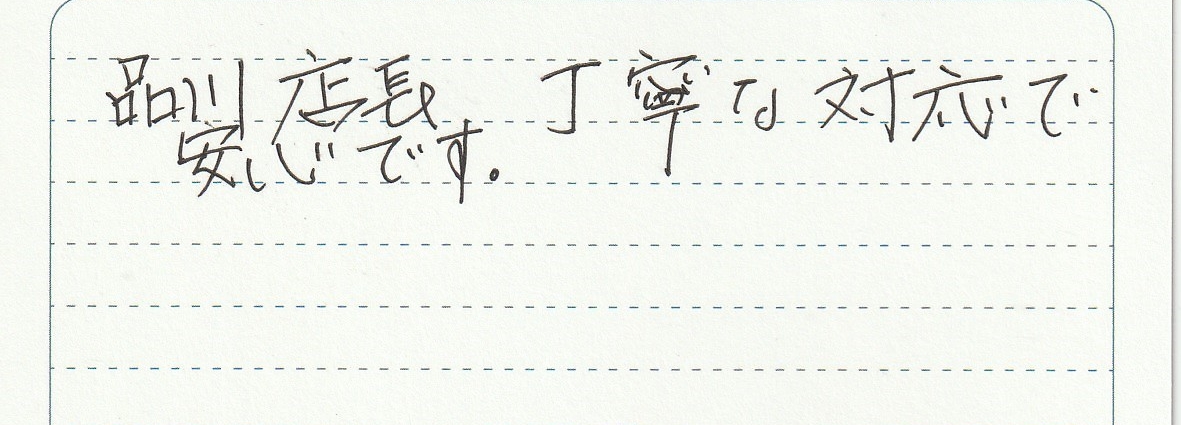 品川店長 丁寧な対応で
安心です.